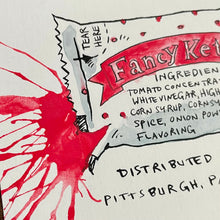 TEAR
HERE
Fancy Ke
INGREDIE
TOMATO CONCENTRA
WHITE VINEGAR, HIGH
CORN SYRUP, CORN S
SPICE, ONION POW
FLAVORING
DISTRIBUTED
PITTSBURGH, PA